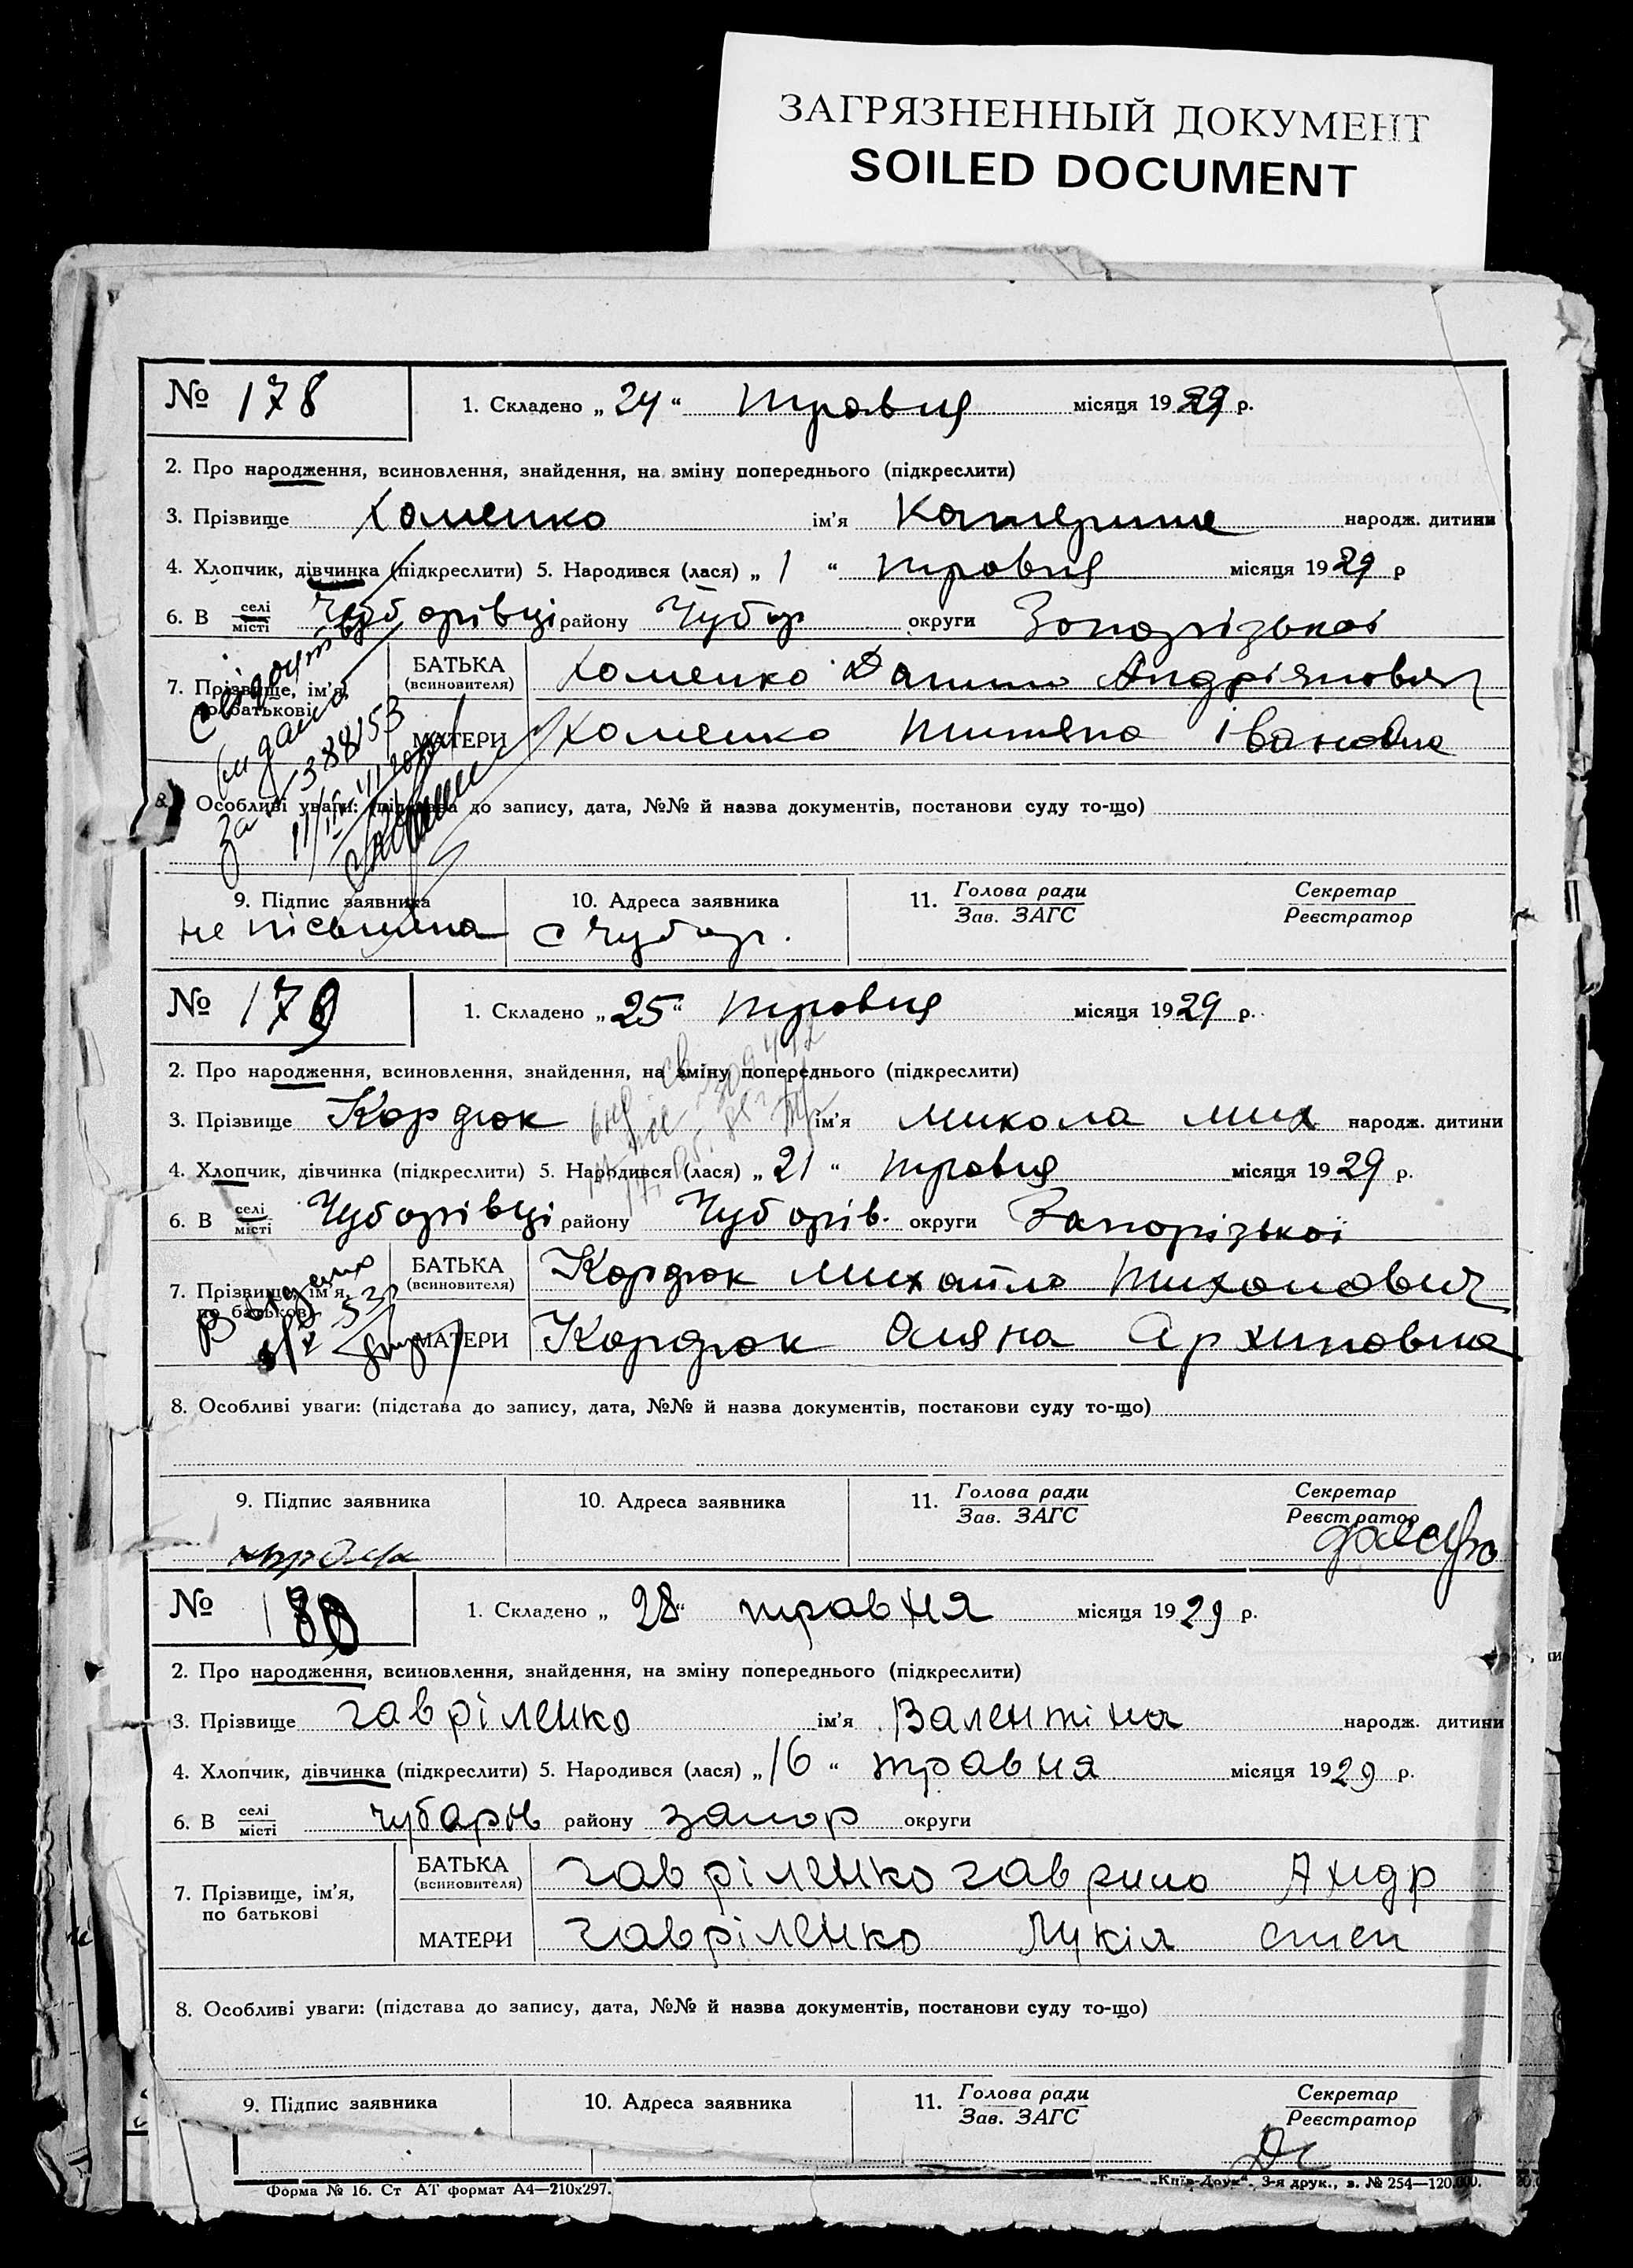 ЗАГРЯЗНЕННЫЙ ДОКУМЕНТ
SOILED DOCUMENT
№ 178
1. Складено „24“ травня місяця 1929 р.
2. Про народження, всиновлення, знайдення, на зміну попереднього (підкреслити)
3. Прізвище Хоменко ім'я Катерина народж. дитини
4. Хлопчик, дівчинка (підкреслити) 5. Народився (лася) „1“ травня місяця 1929 р
6. В селі місті Чубарівці району Чубар округи Запорізької
7. Прізвище, ім'я, по батькові
БАТЬКА (всиновителя) Хоменко Данило Андріянович
МАТЕРИ Хоменко Титяна Івановна
свідоцтво
видано
за 388153
8. Особливі уваги: (підстава до запису, дата, №№ й назва документів, постанови суду то-що)
9. Підпис заявника
не письмина
10. Адреса заявника
с Чубар.
11. Голова ради
Зав. ЗАГС
Секретар
Реєстратор
№ 179
1. Складено „25“ травня місяця 1929 р.
2. Про народження, всиновлення, знайдення, на зміну попереднього (підкреслити)
3. Прізвище Кордюк ім'я Микола Мих народж. дитини
4. Хлопчик, дівчинка (підкреслити) 5. Народився (лася) „21“ травня місяця 1929 р.
6. В селі місті Чубарівці району Чубарів. округи Запорізької
7. Прізвище, ім'я, по батькові
БАТЬКА (всиновителя) Кордюк Михайло Тихонович
МАТЕРИ Кордюк Оляна Архиповна
8. Особливі уваги: (підстава до запису, дата, №№ й назва документів, постанови суду то-що)
9. Підпис заявника
10. Адреса заявника
11. Голова ради
Зав. ЗАГС
Секретар
Реєстратор
№ 180
1. Складено „28“ травня місяця 1929 р.
2. Про народження, всиновлення, знайдення, на зміну попереднього (підкреслити)
3. Прізвище Гавріленко ім'я Валентіна народж. дитини
4. Хлопчик, дівчинка (підкреслити) 5. Народився (лася) „16“ травня місяця 1929 р.
6. В селі місті Чубарів району Запор округи
7. Прізвище, ім'я, по батькові
БАТЬКА (всиновителя) Гавріленко Гаврило Андр
МАТЕРИ Гавріленко Лукія Степ
8. Особливі уваги: (підстава до запису, дата, №№ й назва документів, постанови суду то-що)
9. Підпис заявника
10. Адреса заявника
11. Голова ради
Зав. ЗАГС
Секретар
Реєстратор
Форма № 16. Ст АТ формат А4—210х297.
„Київ-Друк“. 3-я друк., з. № 254—120.000.